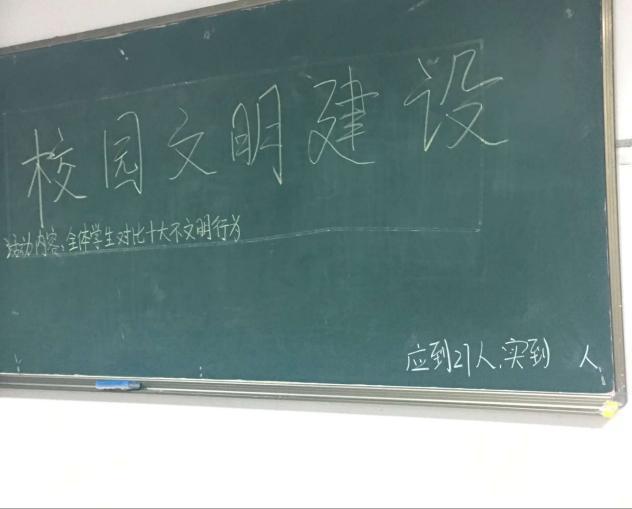 校园文明建设
活动内容:全体学生对比十大不文明行为
应到21人,实到 人